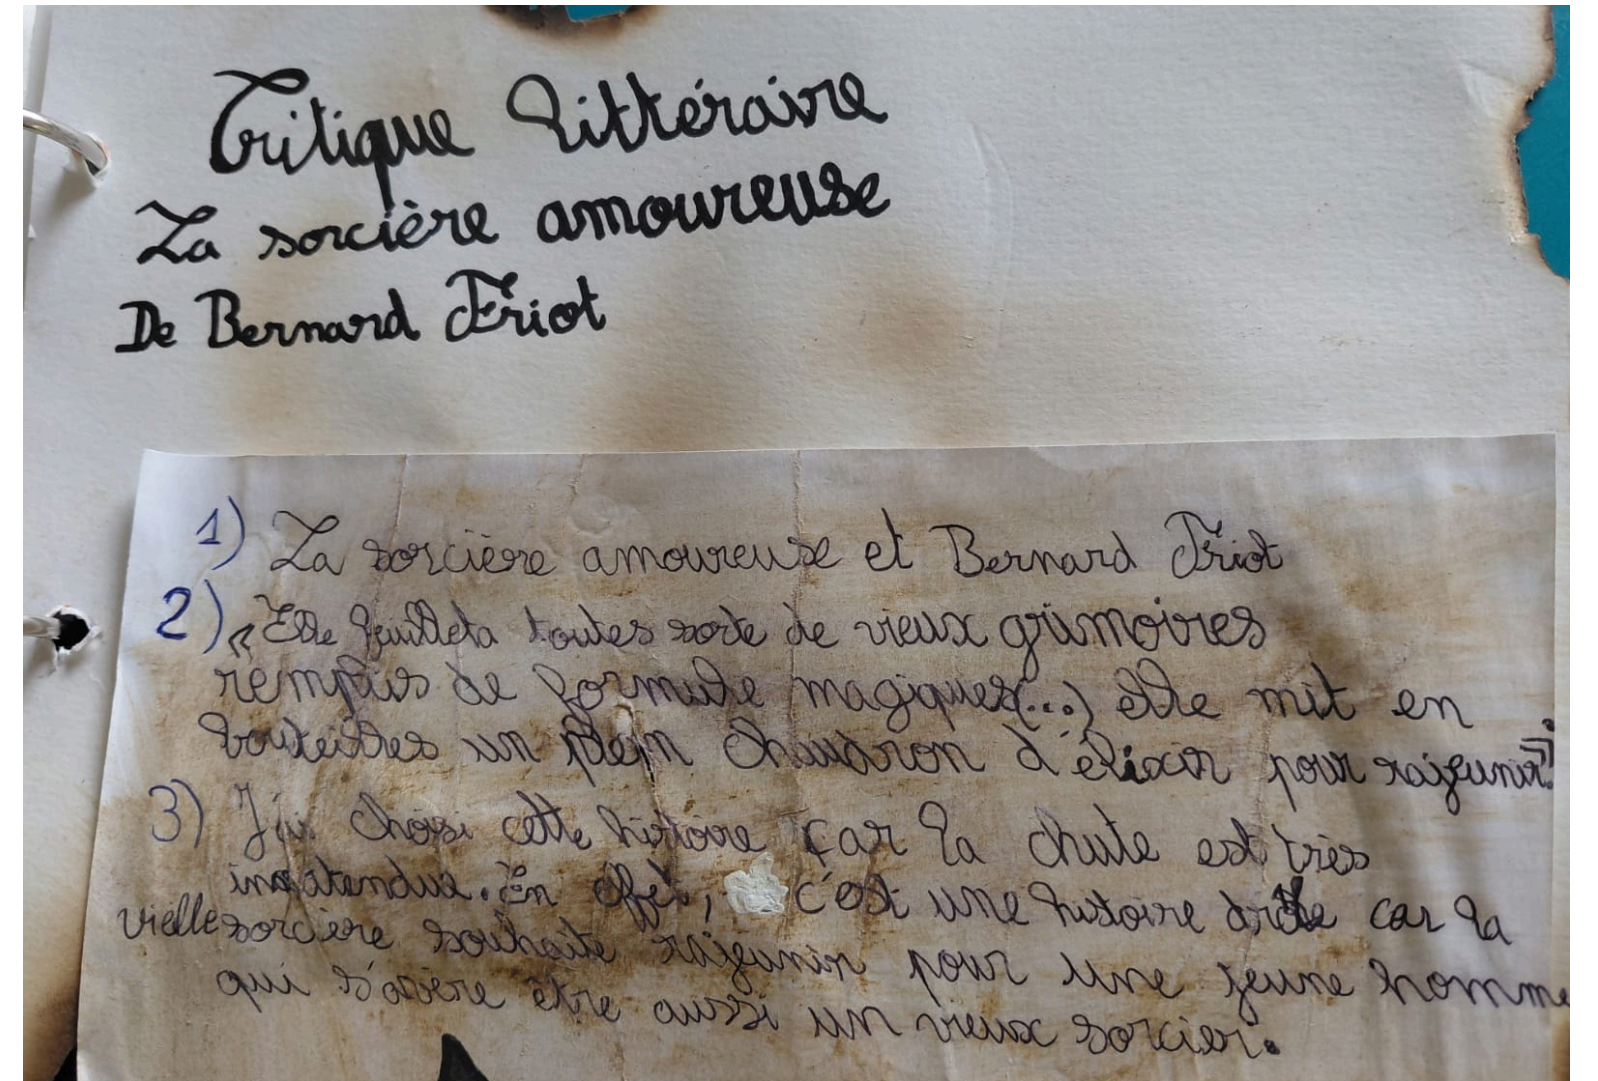 Critique littéraire
La sorcière amoureuse
De Bernard Friot
1) La sorcière amoureuse et Bernard Friot
2) « Elle feuilleta toutes sorte de vieux grimoires
remplis de formule magiques(...) elle mit en
bouteilles un plein chaudron d'élixir pour rajeunir».
3) J'ai choisi cette histoire car la chute est très
inatendue. En effet, c'est une histoire drôle car la
vielle sorcière souhaite rajeunir pour une jeune homme
qui s'avère être aussi un vieux sorcier.